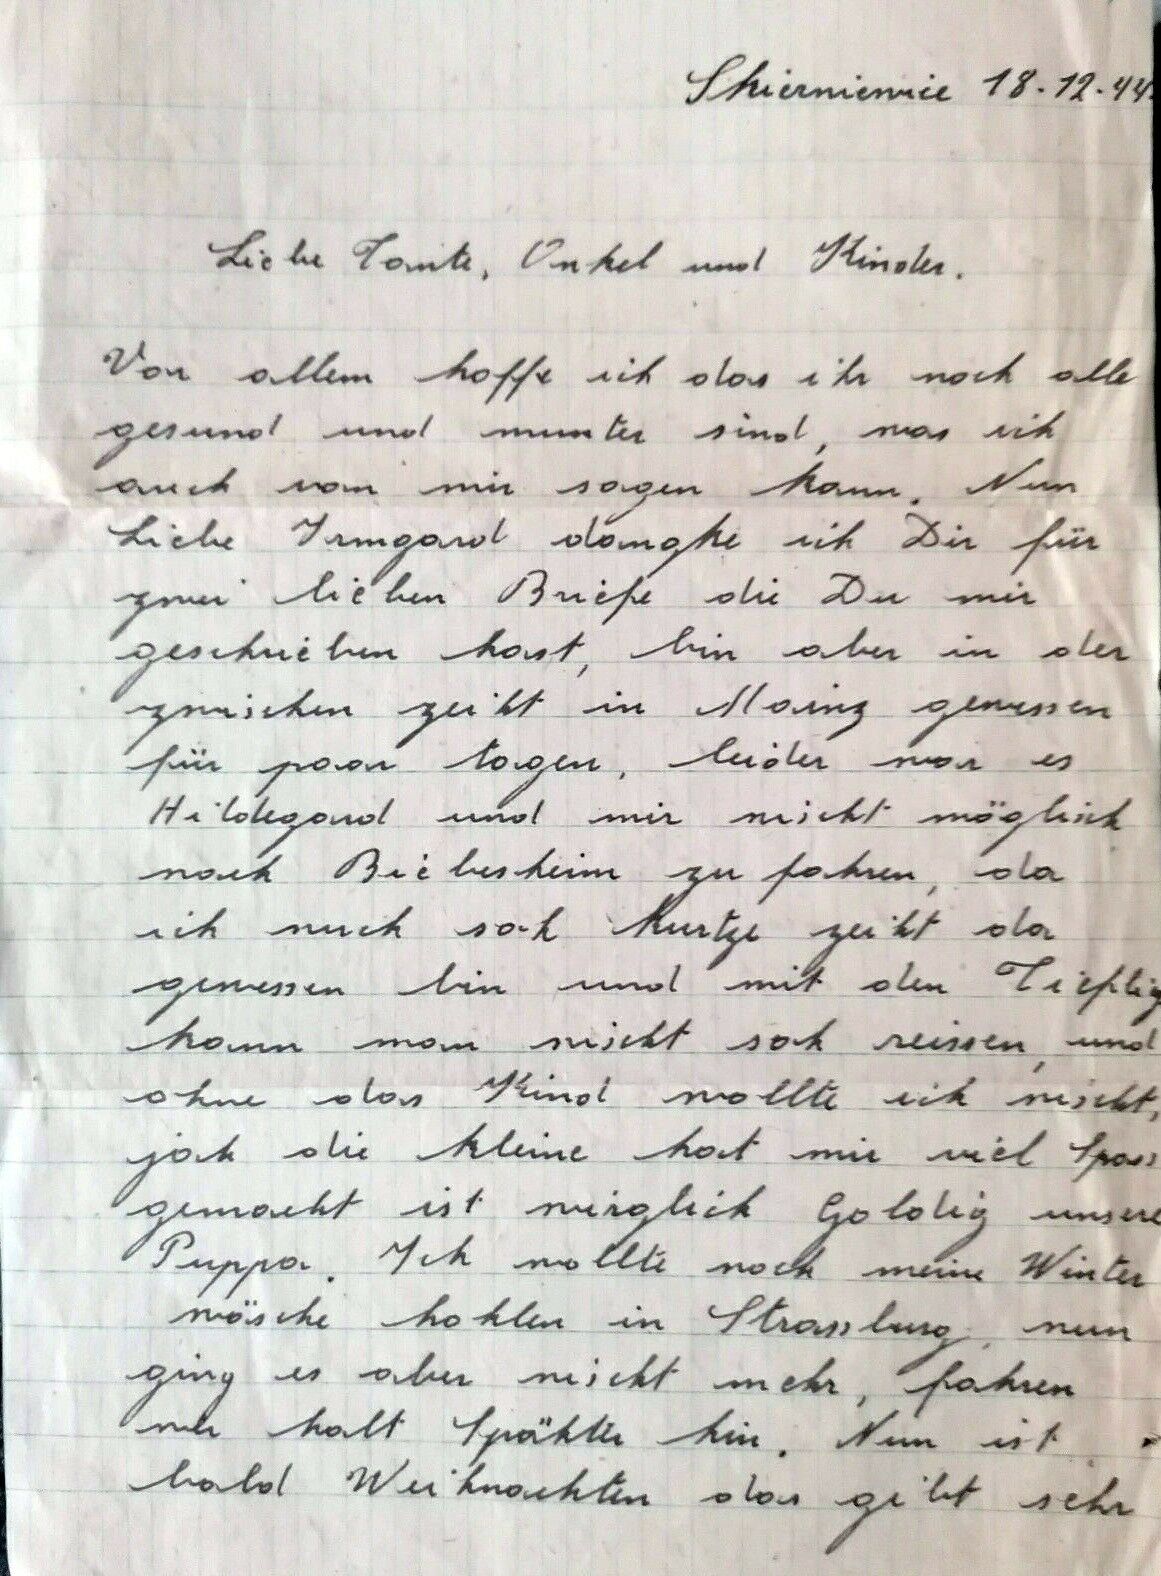 Skierniewice 18.12.44.
Liebe Tante, Onkel und Kinder.
Vor allem hoffe ich das ihr noch alle
gesund und munter sind, was ich
auch von mir sagen kann. Nun
Liebe Irmgard dangke ich Dir für
zwei lieben Briefe die Du mir
geschrieben hast, bin aber in der
zwischen zeiht in Mainz gewessen
für paar tagen, leider war es
Hildegard und mir nischt möglich
nach Biebesheim zu fahren, da
ich nuch soh kurtze zeiht da
gewessen bin und mit den Tieflig
kann man nischt soh reissen, und
ohne das Kind wollte ich nischt,
jah die kleine hat mir viel Spass
gemacht ist wirglich Goldig unsere
Puppa. Ich wollte noch meine Winter
wäsche hohlen in Strassburg, nun
ging es aber nischt mehr, fahren
wir halt Spähter hin. Nun ist
bald Weihnachten das gibt sehr